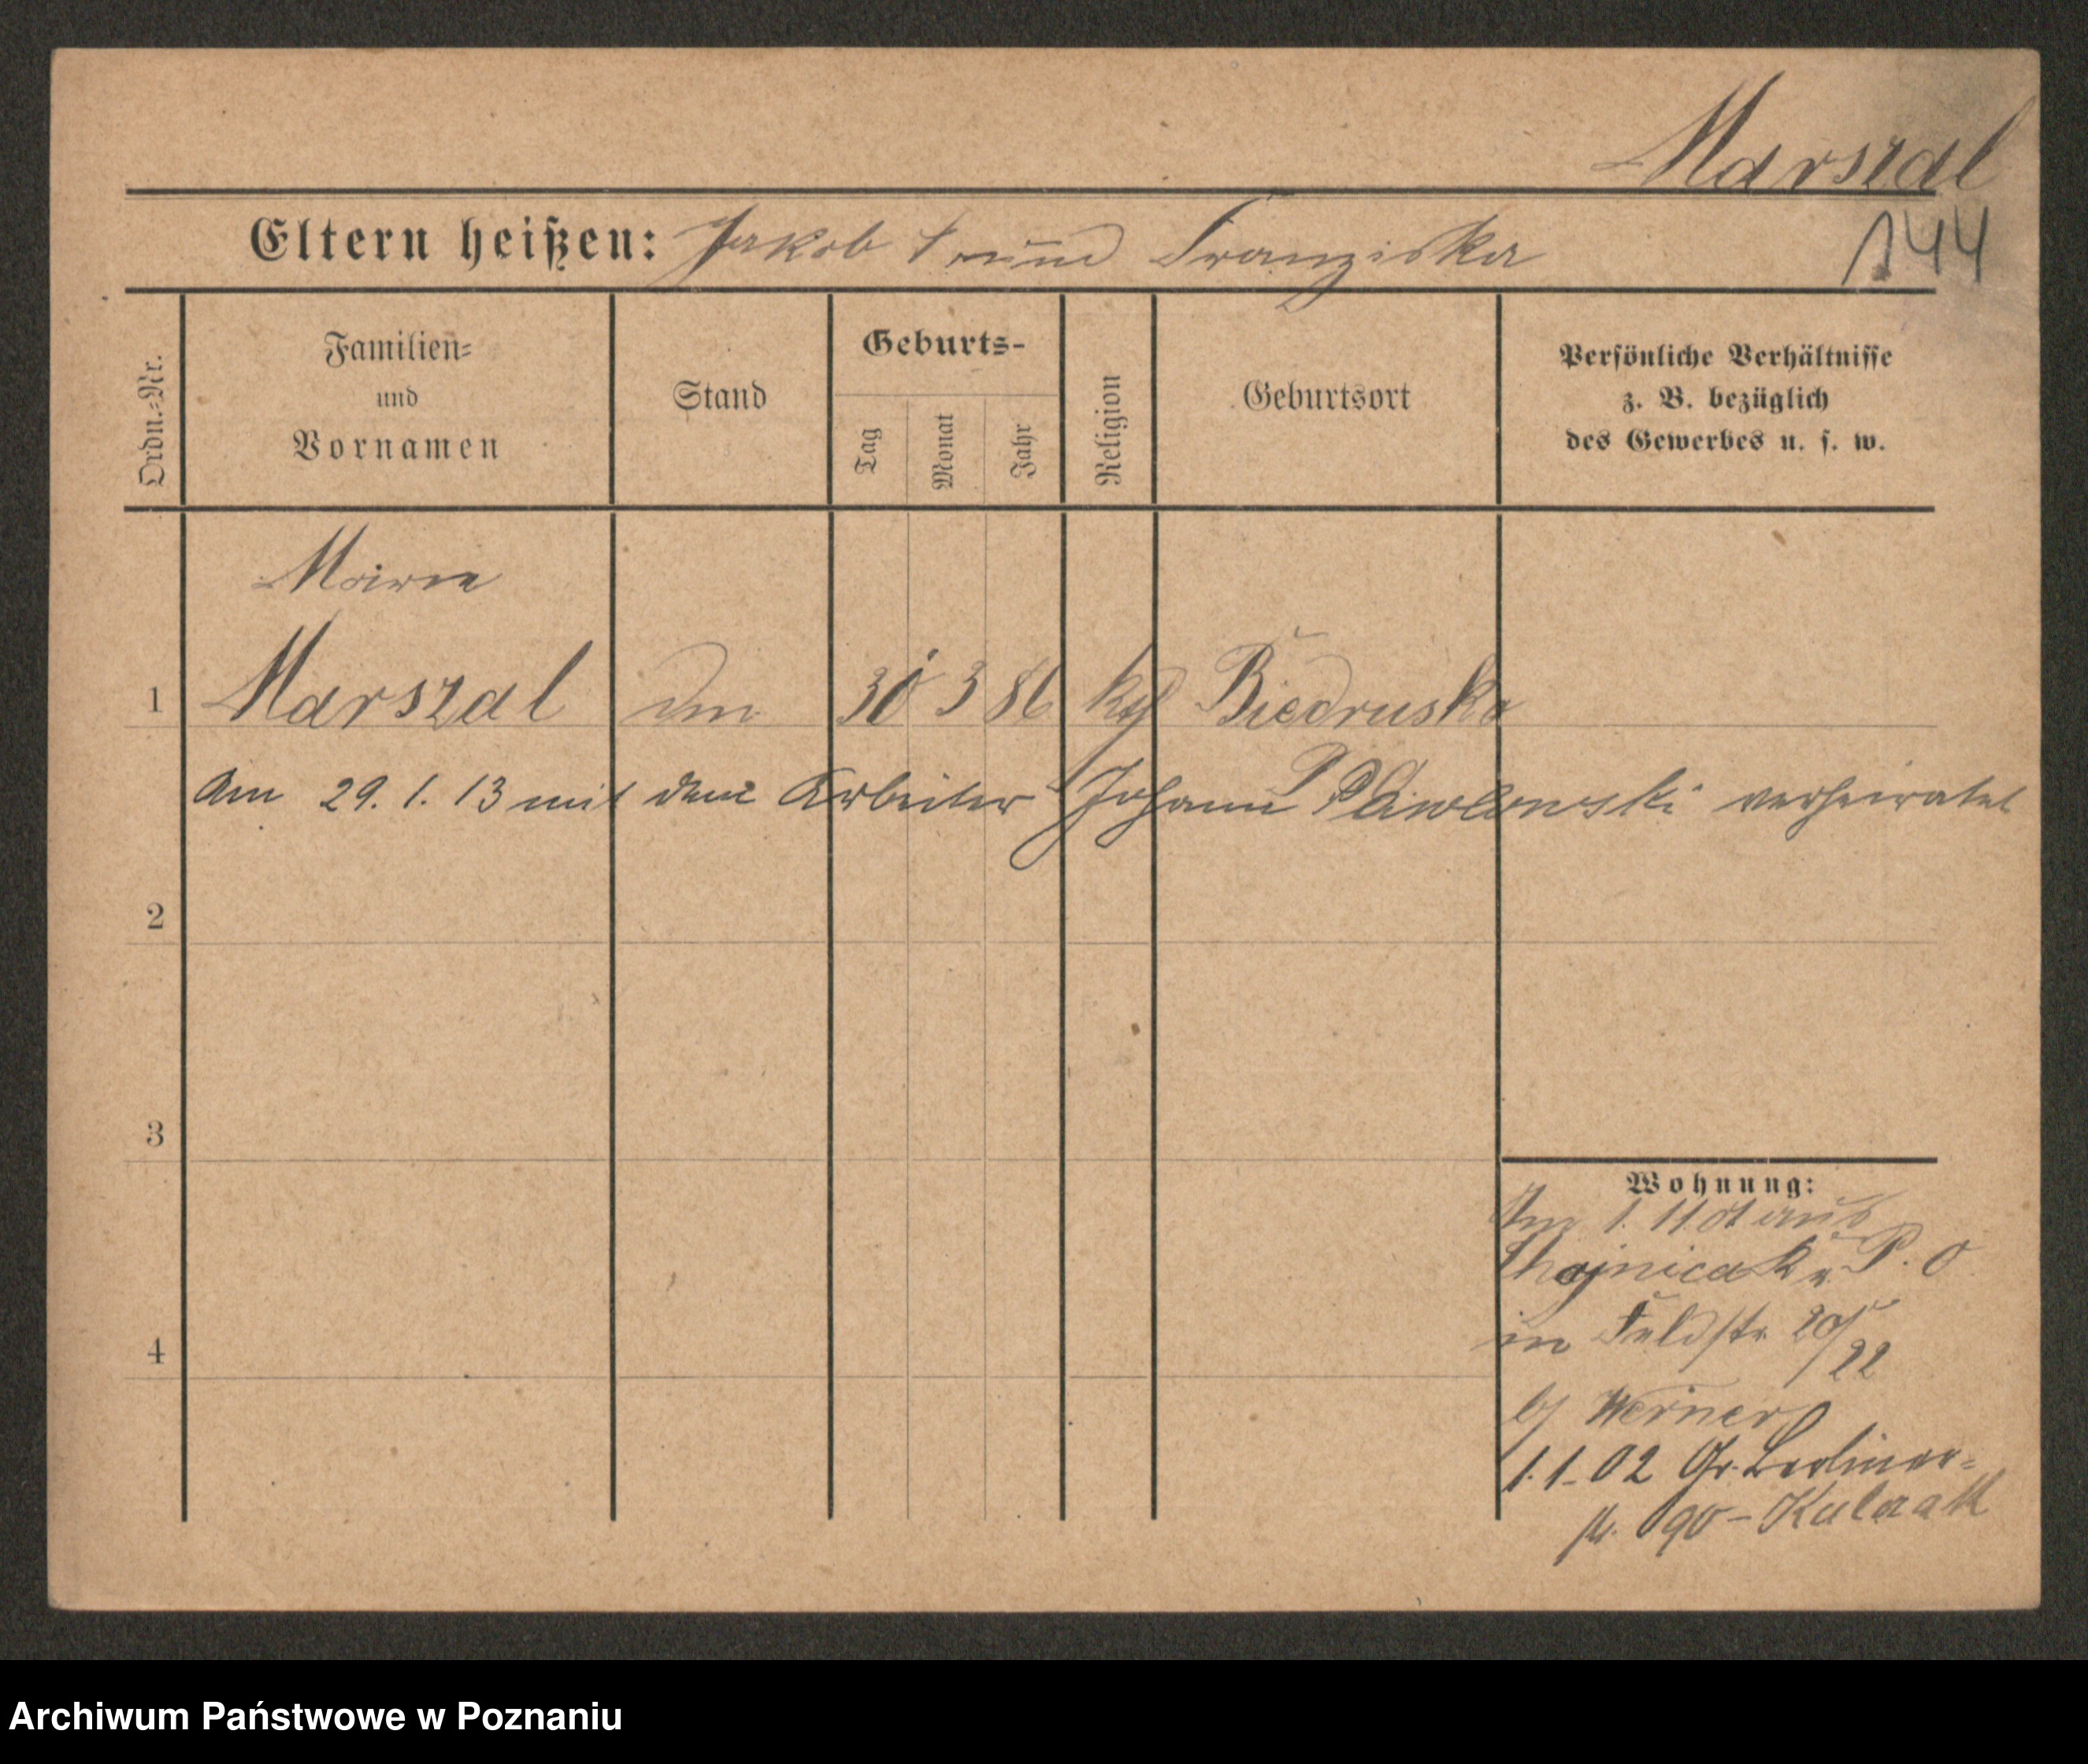 Marszal
Eltern heißen: Jakob † und Franziska
144
Ordn.-Nr.
Familien-
und
Vornamen
Stand
Geburts-
Tag
Monat
Jahr
Religion
Geburtsort
Persönliche Verhältnisse
z. B. bezüglich
des Gewerbes u. s. w.
Marie
1 Marszal 30 3 86 kth Biedrusko
Am 29. 1. 13 mit dem Arbeiter Johann Pawlowski verheiratet
2
3
Wohnung:
1. 11 01 aus
Chojnica Kr. P. O
in Feldstr 20/22
4
b/ Werner
1. 1. 02 Gr. Berliner-
str. 90 -
Archiwum Państwowe w Poznaniu